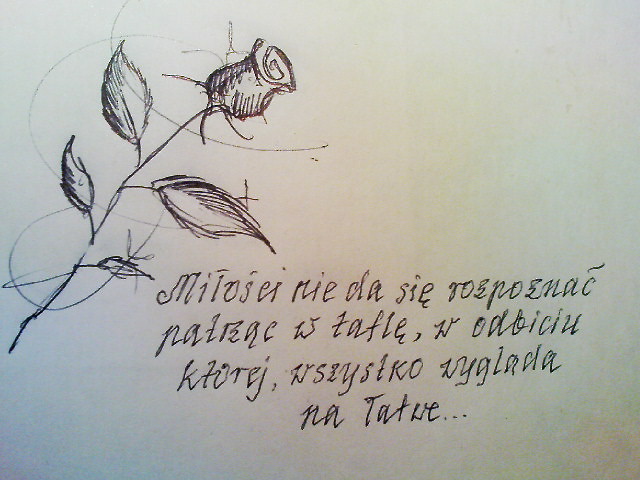 Miłości nie da się rozpoznać
patrząc w taflę, w odbiciu
której, wszystko wygląda
na łatwe...